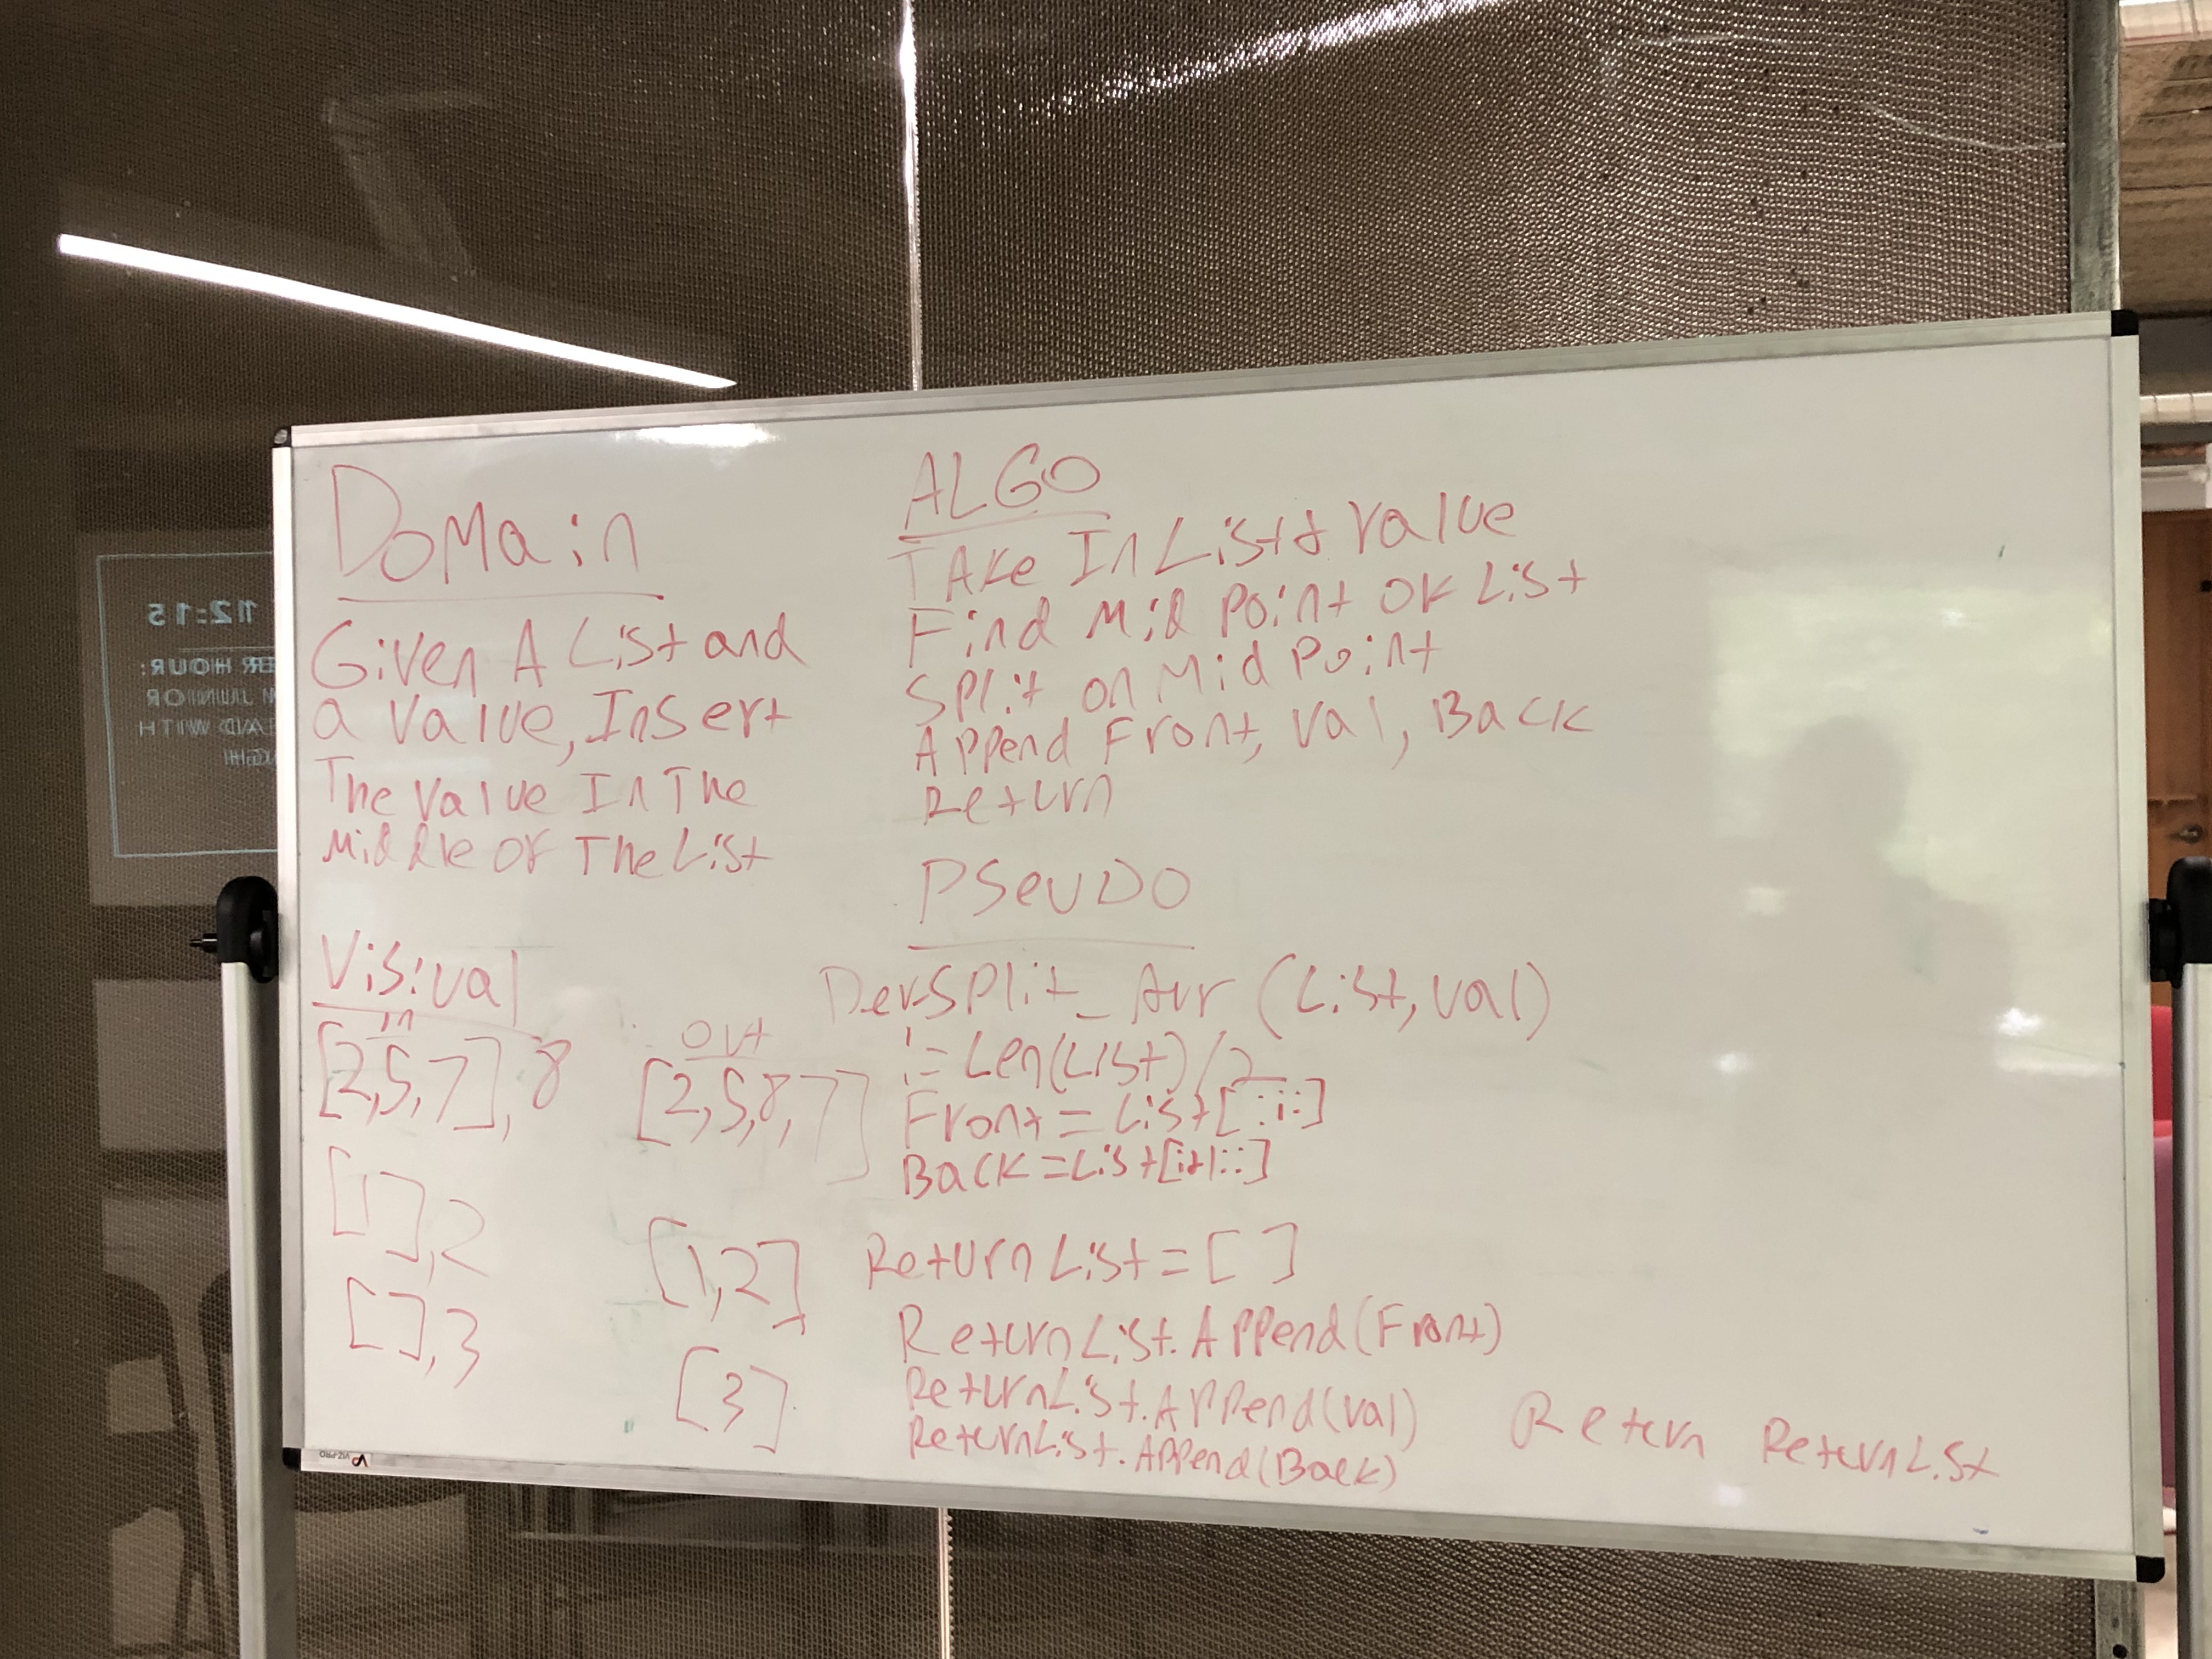 Domain
Given A List and
a Value, Insert
The Value In The
Middle Of The List
Visual
in
[2,5,7],8
[1],2
[],3
out
[2,5,8,7]
[1,2]
[3]
ALGO
TAke In List & Value
Find Mid Point OF List
Split on Mid Point
Append Front, Val, Back
Return
PSeuDO
Def Split_Arr (List, Val)
i= Len(List)/2
Front = List[:i:]
Back = List[i+1::]
Return List = []
Return List.Append(Front)
Return List.Append(Val)
Return List.Append(Back)
Return Return List
112:15
HOUR:
JUNIOR
WITH